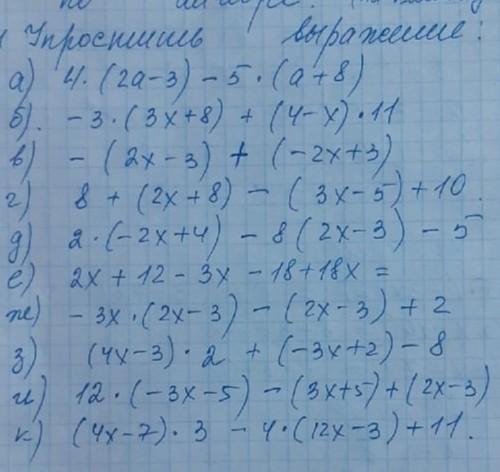 по
Упростить выражение:
а) 4·(2a-3) - 5·(a+8)
б). -3·(3x+8) + (4-x)·11
в) -(2x-3) + (-2x+3)
г) 8 + (2x+8) - (3x-5) + 10.
д) 2·(-2x+4) - 8(2x-3) - 5
е) 2x + 12 - 3x - 18 + 18x =
ж) -3x·(2x-3) - (2x-3) + 2
з) (4x-3)·2 + (-3x+2) - 8
и) 12·(-3x-5) - (3x+5) + (2x-3)
к) (4x-7)·3 - 4·(12x-3) + 11.